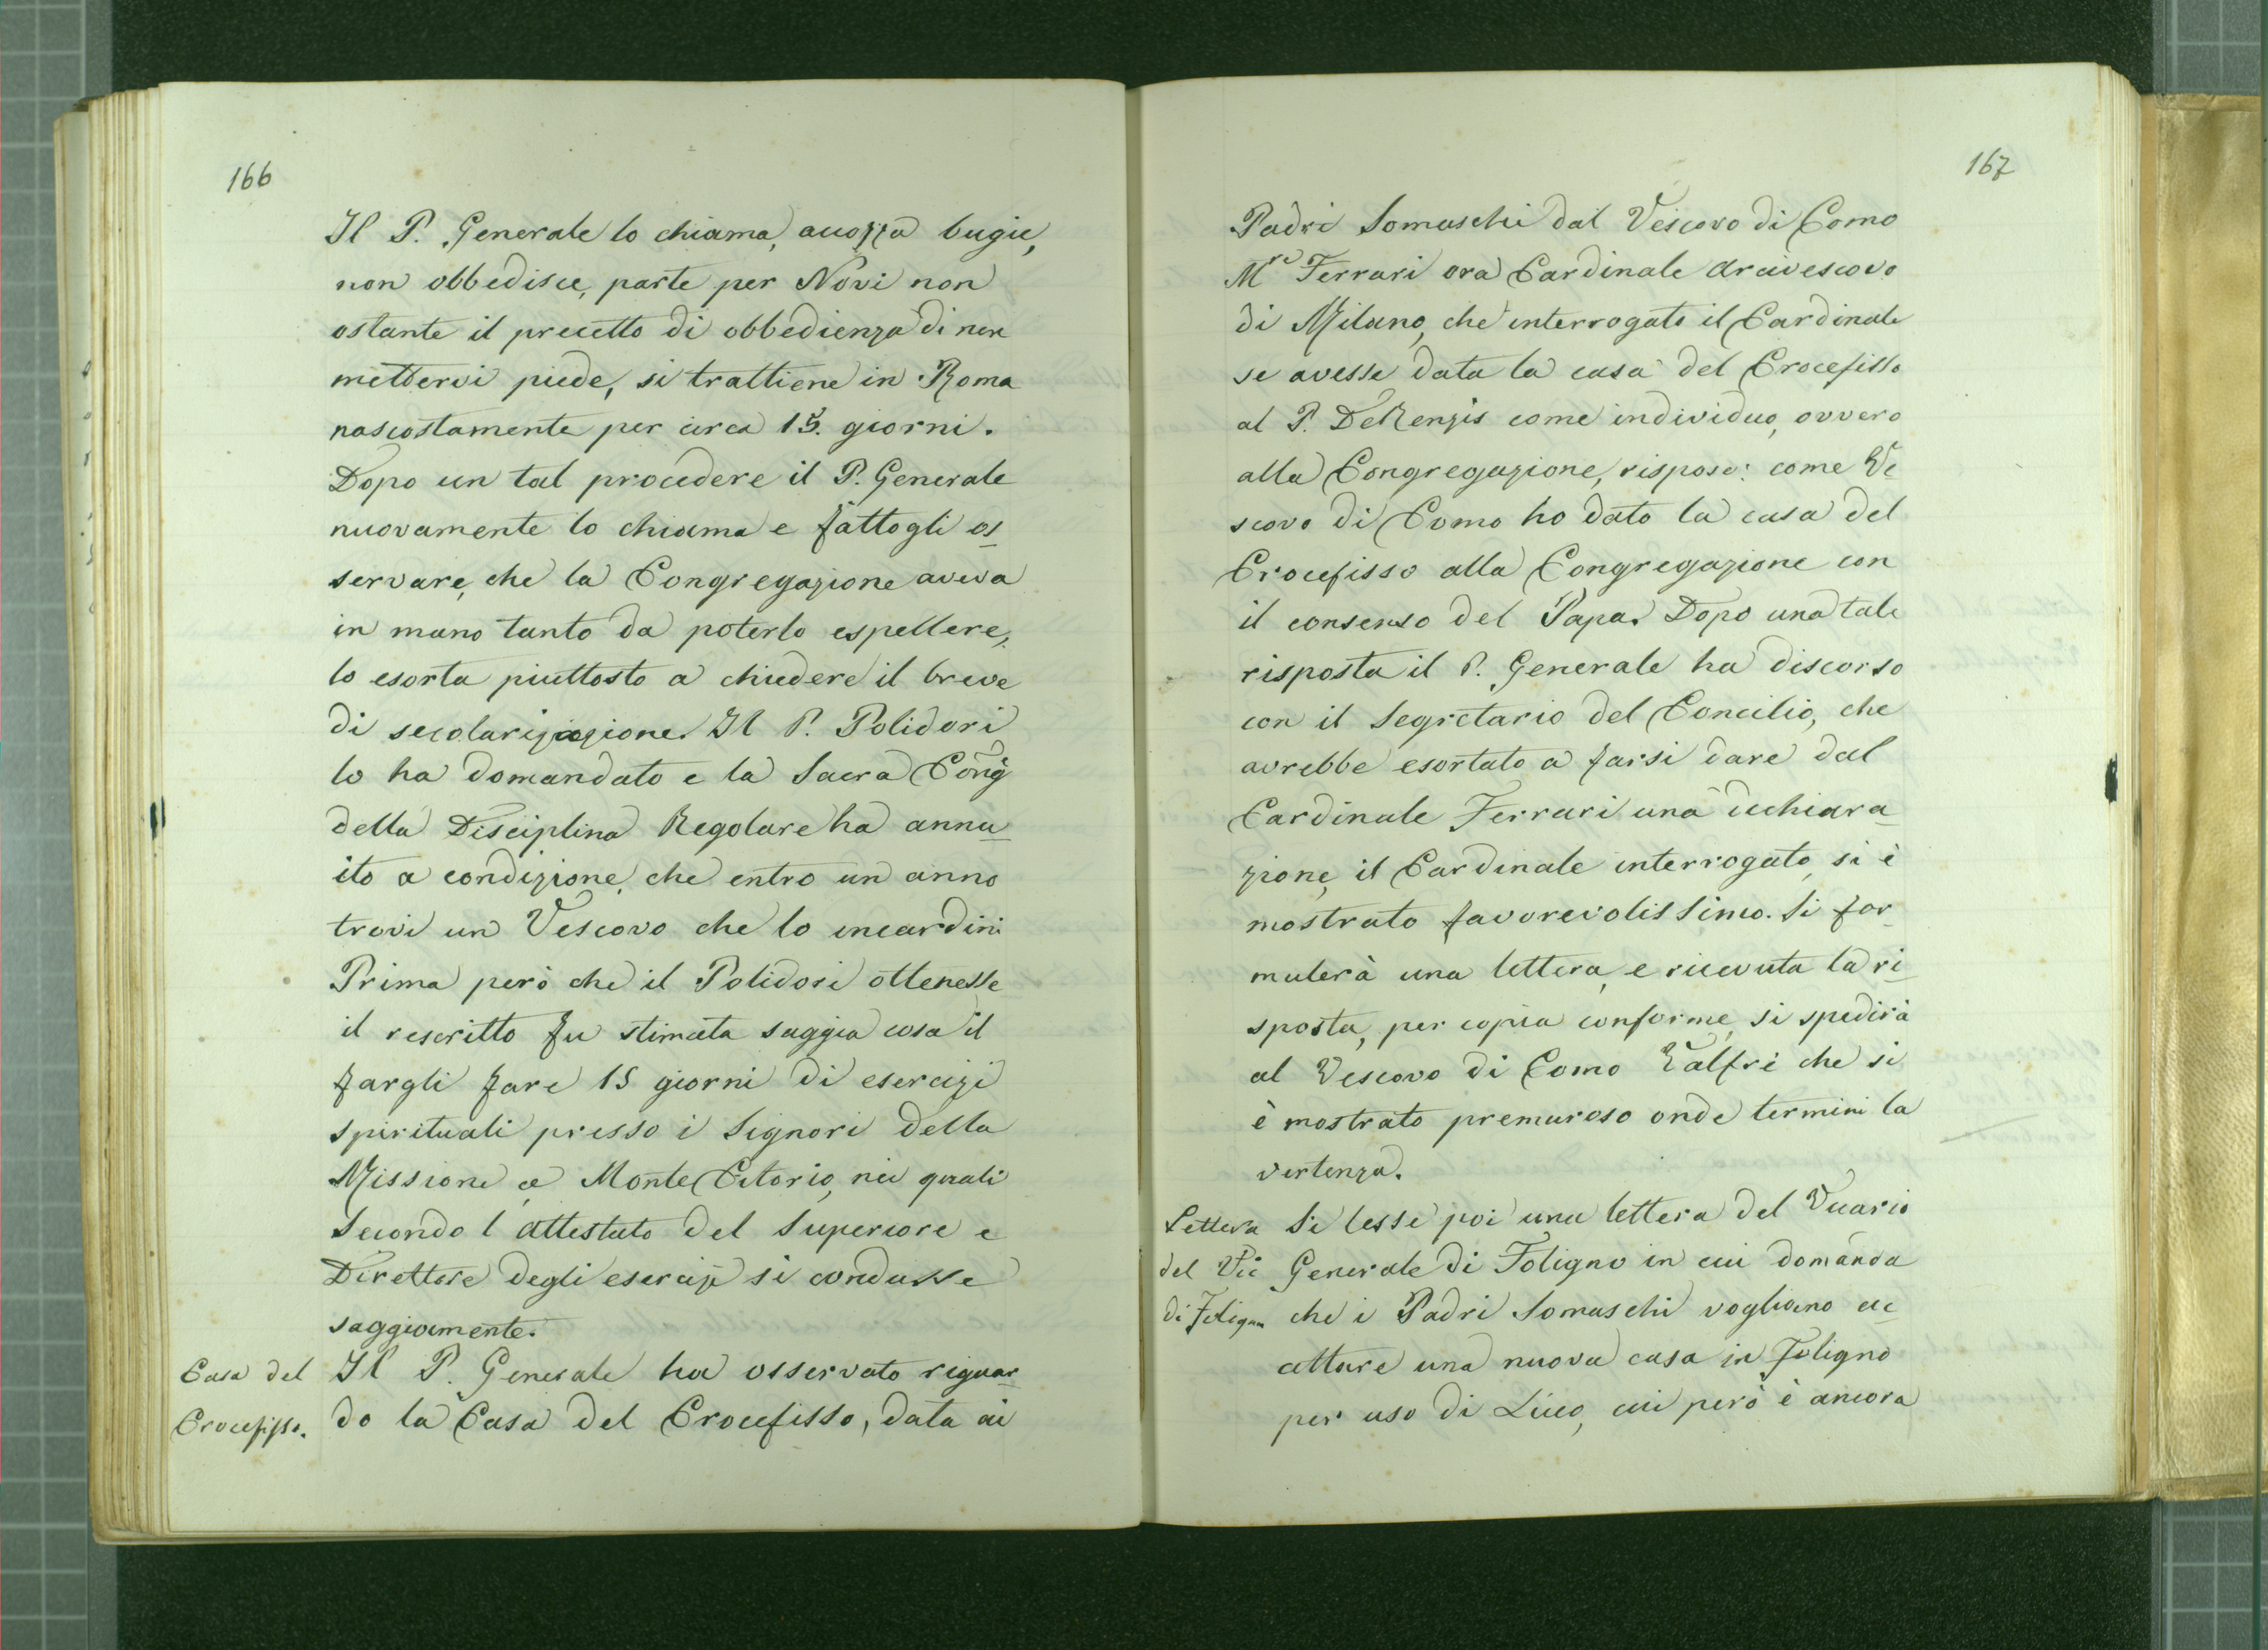 166
Il P. Generale lo chiama, accozza bugie,
non obbedisce, parte per Novi non
ostante il precetto di obbedienza di non
mettervi piede, si trattiene in Roma
nascostamente per circa 15. giorni.
Dopo un tal procedere il P. Generale
nuovamente lo chiama e fattogli os
servare, che la Congregazione aveva
in mano tanto da poterlo espellere,
lo esorta piuttosto a chiedere il breve
di secolarizzazione. Il P. Polidori
lo ha domandato e la Sacra Cong
della Disciplina Regolare ha annu
ito a condizione, che entro un anno
trovi un Vescovo che lo incardini
Prima però che il Polidori ottenesse
il rescritto fu stimata saggia cosa il
fargli fare 15 giorni di esercizi
spirituali presso i Signori della
Missione a Monte Citorio, nei quali
secondo l attestato del Superiore e
Direttore degli esercizi si condusse
saggiamente.
Casa del
Crocefisso.
Il P. Generale ha osservato riguar
do la Casa del Crocefisso, data ai
167
Padri Somaschi dal Vescovo di Como
Mre Ferrari ora Cardinale Arcivescovo
di Milano, che interrogato il Cardinale
se avesse data la casa del Crocefisso
al P. DeRenzis come individuo, ovvero
alla Congregazione, rispose: come Ve
scovo di Como ho dato la casa del
Crocefisso alla Congregazione con
il consenso del Papa. Dopo una tale
risposta il P. Generale ha discorso
con il Segretario del Concilio, che
avrebbe esortato a farsi dare dal
Cardinale Ferrari una dichiara
zione, il Cardinale interrogato, si è
mostrato favorevolissimo. Si for
mulerà una lettera, e ricevuta la ri
sposta, per copia conforme, si spedirà
al Vescovo di Como Valfrè che si
è mostrato premuroso onde termini la
vertenza.
Lettera
del Vic
di Foligno
Si lesse poi una lettera del Vicario
Generale di Foligno in cui domanda
che i Padri Somaschi vogliano ac
cettare una nuova casa in Foligno
per uso di Liceo, cui però è ancora